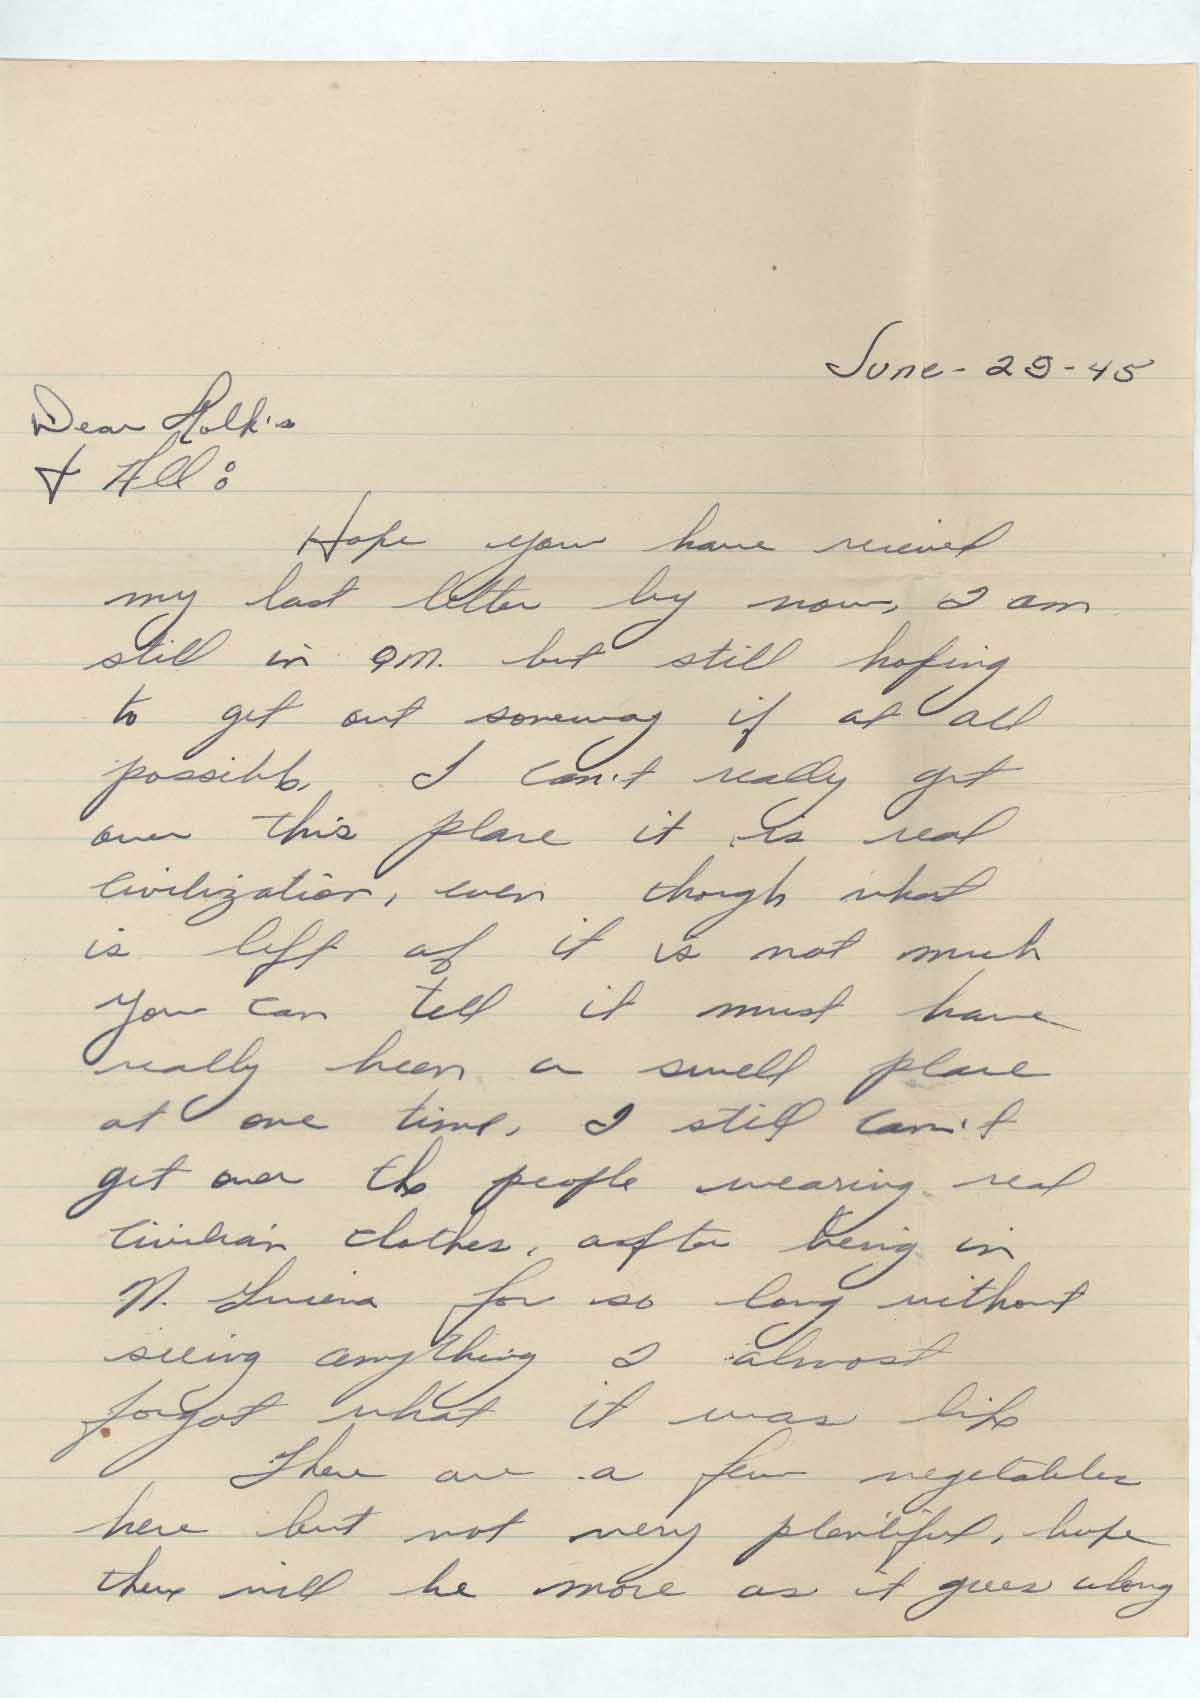 June - 29 - 45
Dear Folk's
& All:
Hope you have recieved
my last letter by now, I am
still in QM. but still hoping
to get out someway if at all
possible, I can't really get
over this place it is real
civilization, even though what
is left of it is not much
you can tell it must have
really been a swell place
at one time, I still can't
get over the people wearing real
civilian clothes, after being in
N. Guiena for so long without
seeing anything I almost
forgot what it was like
There are a few vegetables
here but not very plentiful, hope
there will be more as it goes along